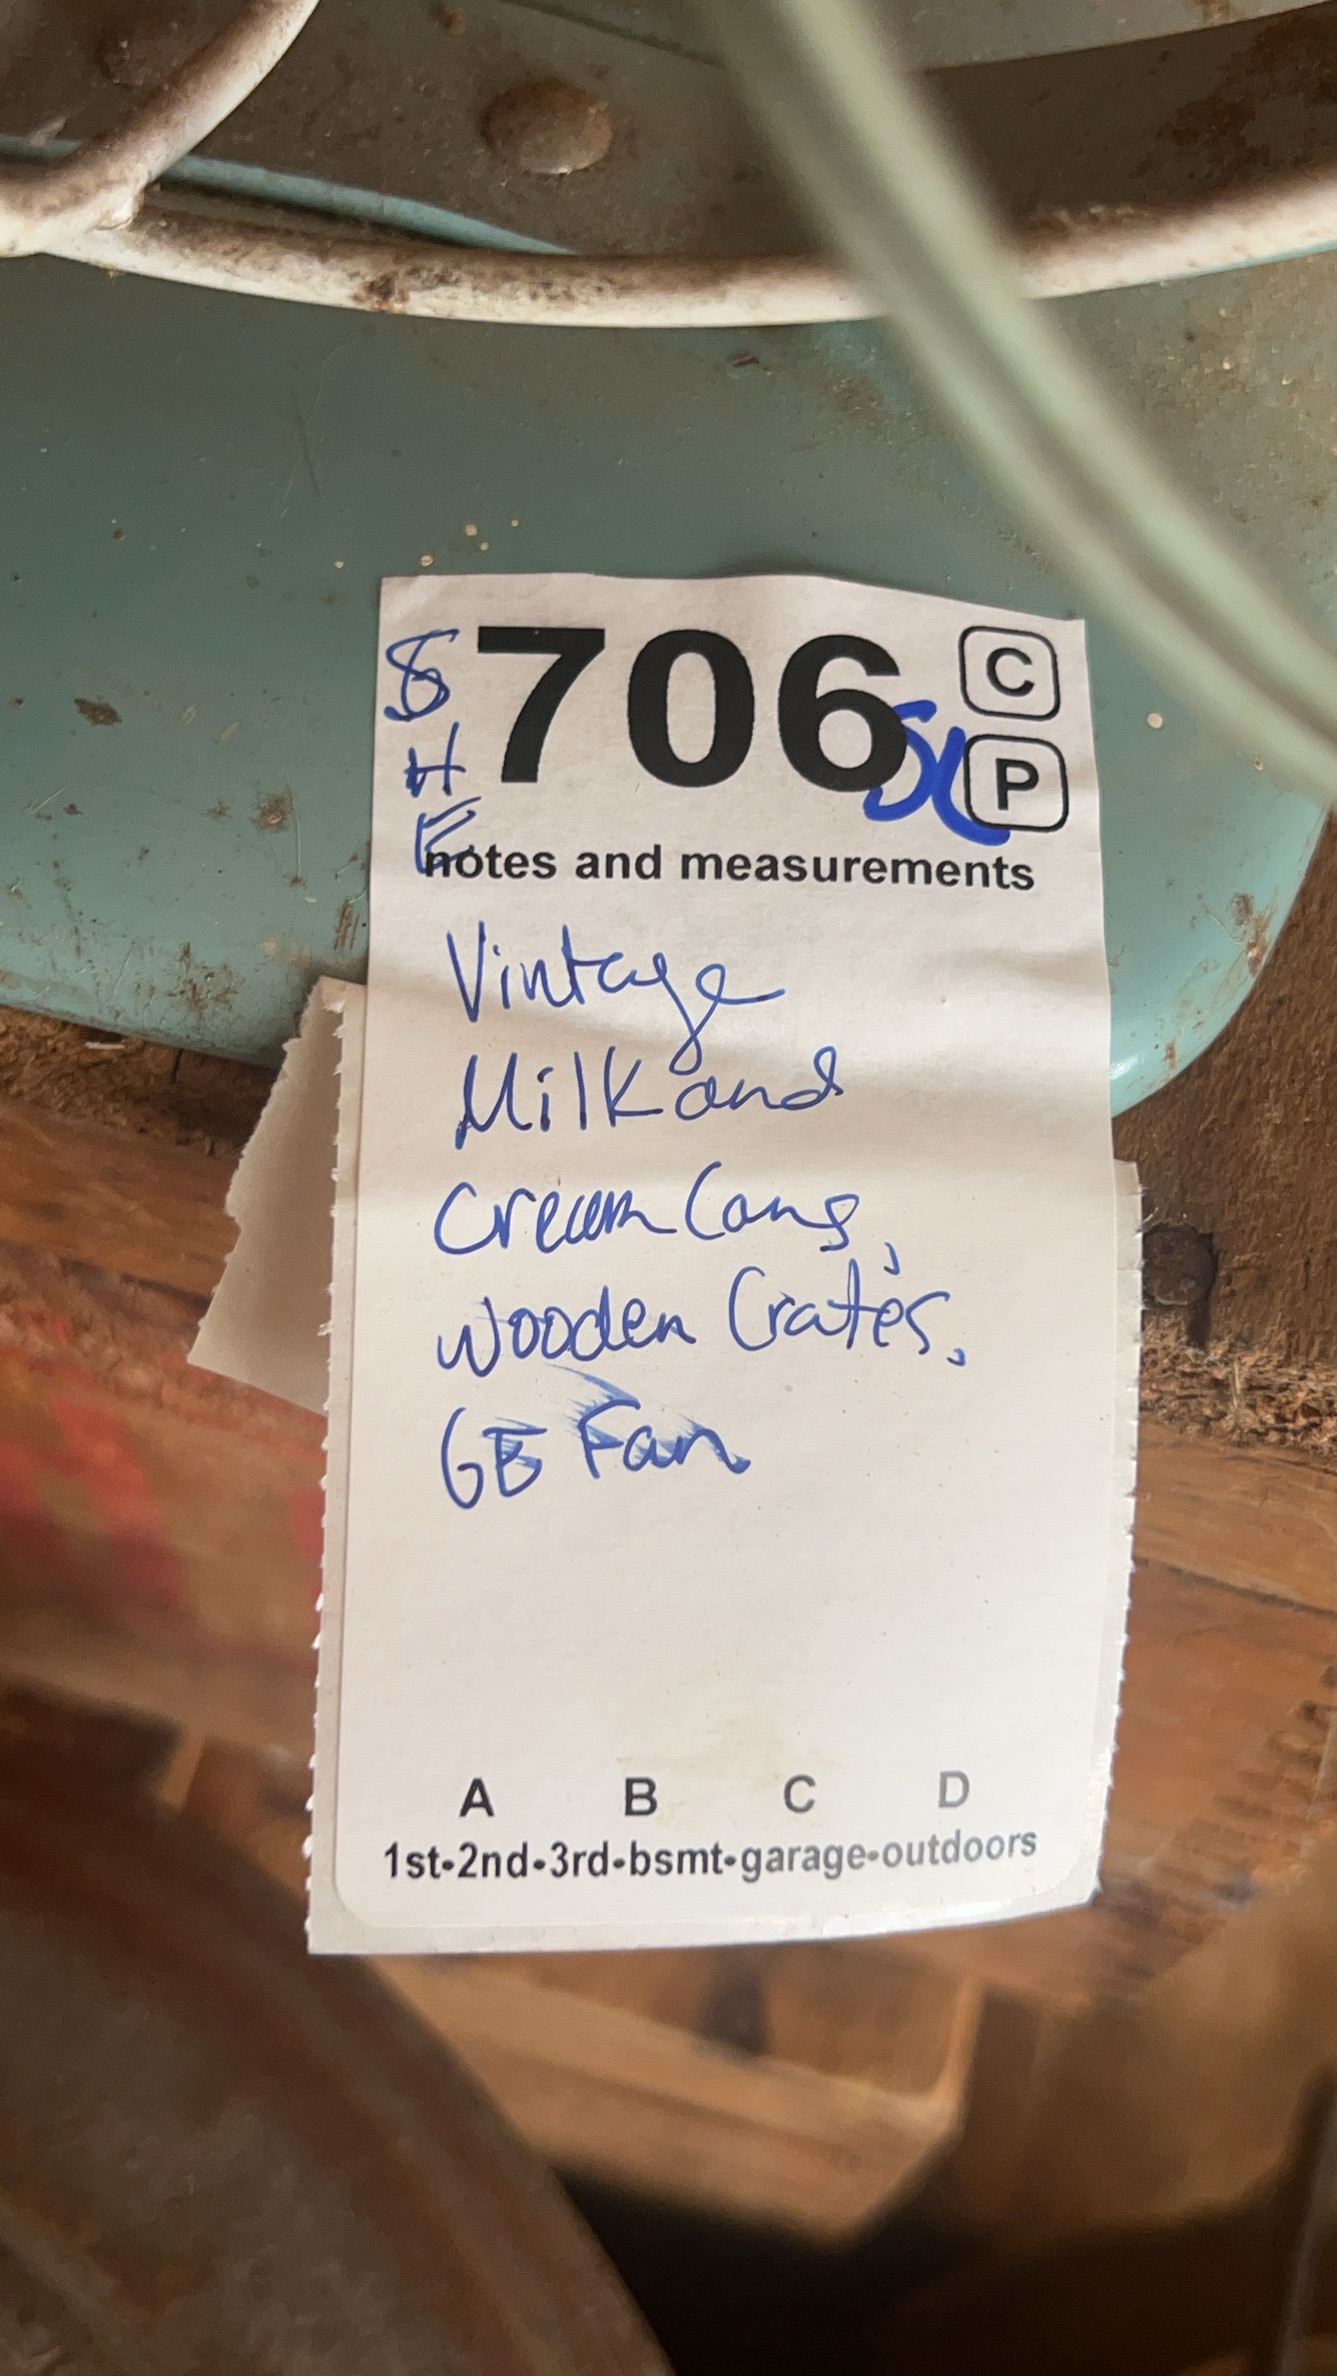 706
C
P
S
H
E
SL
notes and measurements
Vintage
Milk and
Cream Cans,
Wooden Crates,
GE Fan
A B C D
1st-2nd-3rd-bsmt-garage-outdoors